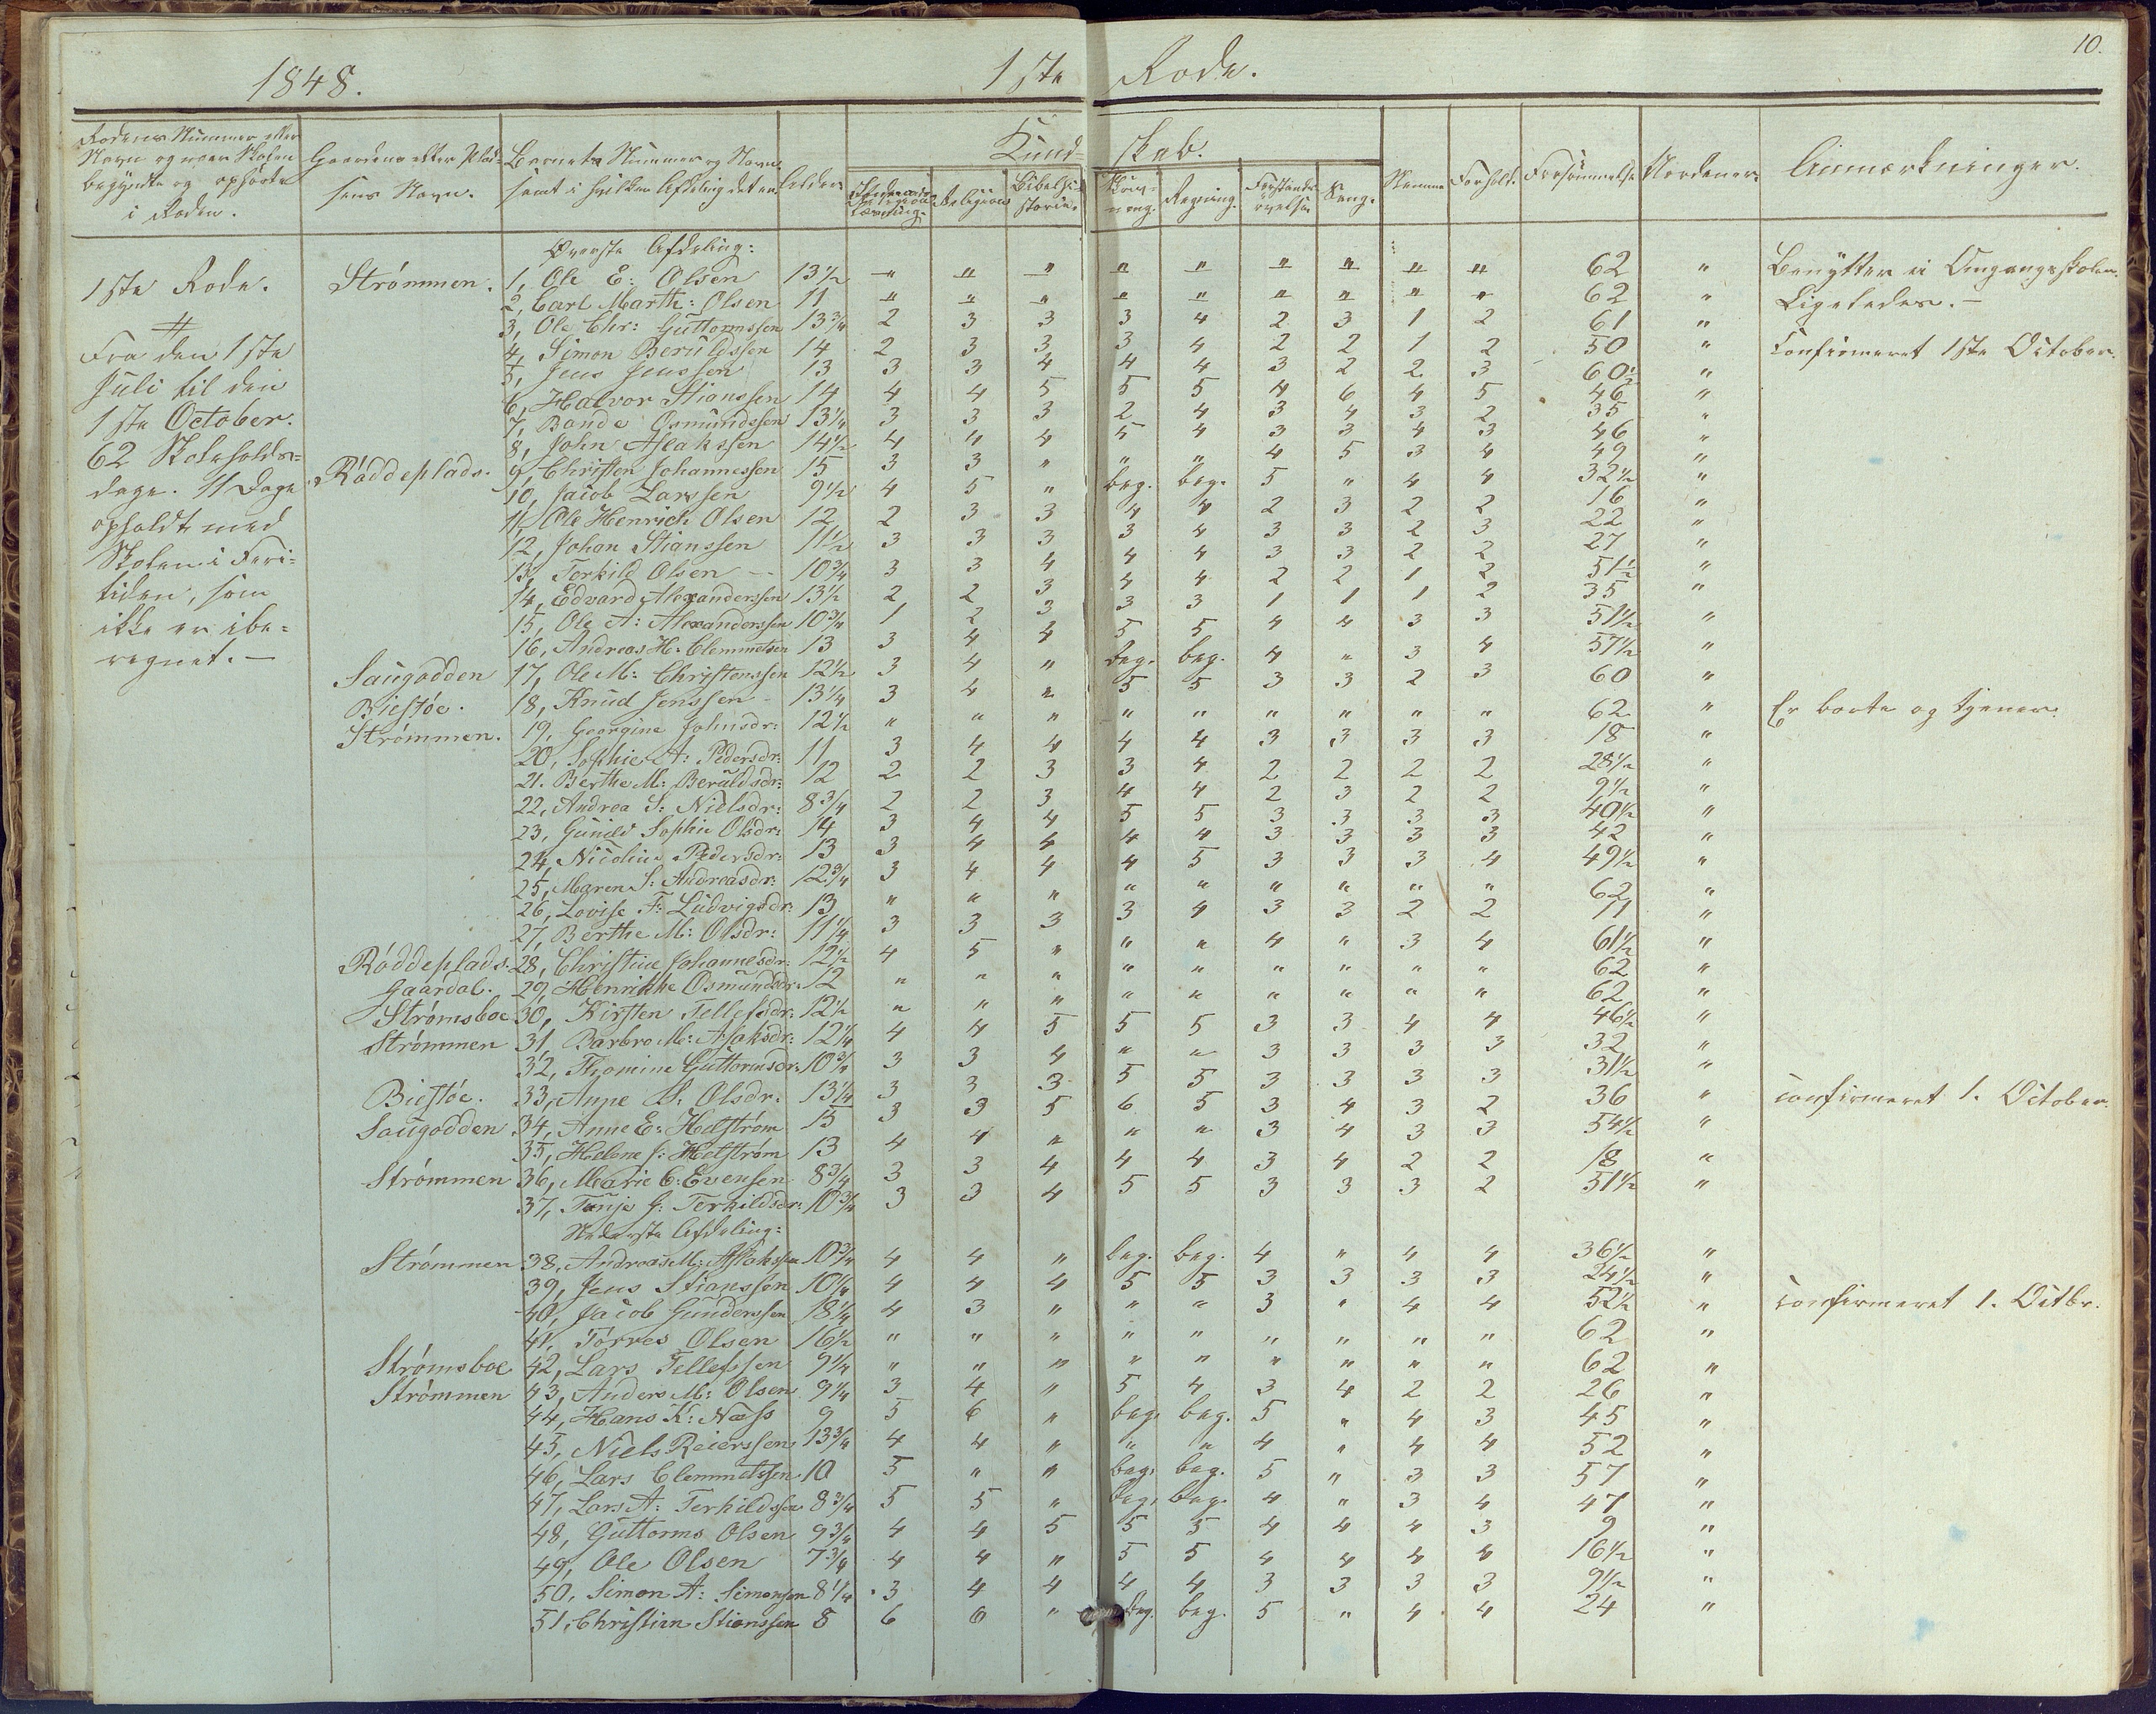 10.
1848. 1ste Rode.
Rodens Nummer eller Navn og naar Skolen begyndte og ophørte i Roden. Gaardens eller Pladsens Navn. Barnets Nummer og Navn samt i hvilken Afdeling det er. Alder. Kundskab. Religion. Bibelhistorie. Skrivning. Regning. Forstandsøvelse. Sang. Nemme. Forhold. Forsømmelse. Anmærkninger.
Øverste Afdeling:
1ste Rode. Strømmen. 1, Ole E: Olsen 13½ " " " " " " " " " 62 " Benytter ei Omgangsskolen.
2, Carl Marth: Olsen 11 " " " " " " " " " 62 " Ligeledes.—
3, Ole Chr: Guttormssen 13¾ 2 3 3 3 4 2 3 1 2 61 "
Fra den 1ste 4, Simon Beruldssen 14 2 3 3 3 4 2 2 1 2 50 " Confirmeret 1ste October.
Juli til den 5, Jens Jenssen 13 3 3 4 4 4 3 2 2 3 60½ "
6, Halvor Stianssen 14 4 4 5 5 5 4 6 4 5 46 "
1ste October. 7, Bande Osmundssen 13¼ 3 3 3 2 4 3 4 3 2 35 "
8, John Aslakssen 14½ 4 4 4 5 4 3 3 4 3 46 "
62 Skoleholds- Røddeplads. 9, Christen Johannessen 15 3 3 " " " 4 5 3 4 49 "
dage. 11 Dage 10, Jacob Larssen 9½ 4 5 " beg. beg. 5 " 4 4 32½ "
opholdt med 11, Ole Henrich Olsen 12 2 3 3 4 4 2 3 2 2 16 "
Skolen i Feri- 12, Johan Stianssen 11½ 3 3 3 3 4 3 3 2 3 22 "
13, Torkild Olsen — 10¾ 3 3 4 4 4 3 3 2 2 27 "
tiden, som 14, Edvard Alexanderssen 13½ 2 2 3 4 4 2 2 1 2 51½ "
ikke er ibe- 15, Ole A: Alexanderssen 10¾ 1 2 3 3 3 1 1 1 2 35 "
regnet.— 16, Andreas H: Clemmetsen 13 3 4 4 5 5 4 4 3 3 51½ "
Saugodden 17, Ole M: Christenssen 12½ 3 4 " beg. beg. 4 " 3 4 57½ "
Biestøe. 18, Knud Jenssen 13¼ 3 4 " 5 5 3 3 2 3 60 "
Strømmen. 19, Georgine Johnsdr: 12½ " " " " " " " " " 62 " Er borte og tjener.
20, Sophie A: Pedersdr: 11 3 4 4 4 4 3 3 3 3 18 "
21. Berthe M: Beruldsdr: 12 2 2 3 3 4 2 2 2 2 28½ "
22, Andrea S: Nielsdr: 8¾ 2 2 3 4 4 2 3 2 2 9½ "
23, Gunild Sophie Olsdr: 14 3 4 4 5 5 3 3 3 3 40½ "
24, Nicoline Pedersdr: 13 3 4 4 4 4 3 3 3 3 42 "
25, Maren S: Andreasdr: 12¾ 3 4 4 4 5 3 3 3 4 49½ "
26, Lovise F: Ludvigsdr: 13 " " " " " " " " " 62 "
27, Berthe M: Olsdr: 11¼ 3 3 3 3 4 3 3 2 2 11 "
Røddeplads. 28, Christine Johannesdr: 12½ 4 5 " " " 4 " 3 4 61½ "
Gaardal. 29, Henrikke Osmundsdr: 12 " " " " " " " " " 62 "
Strømsboe 30, Kirsten Tellefsdr: 12½ " " " " " " " " " 62 "
Strømmen 31, Barbro M: Aslaksdr: 12¼ 4 4 5 5 5 3 3 4 4 46½ "
32, Thomine Guttormsdr: 10¾ 3 3 4 " " 3 3 3 3 32 "
Biestøe. 33, Anne S: Olsdr: 13¼ 3 3 3 5 5 3 3 3 3 31½ "
Saugodden 34, Anne E: Helstrøm 15 3 3 5 6 5 3 4 3 2 36 " Confirmeret 1. October.
35, Helene J: Helstrøm 13 4 4 " " " 3 4 3 3 54½ "
Strømmen 36, Marie C: Evensen 8¾ 3 3 4 4 4 3 4 2 2 18 "
37, Tanje G: Terkildsdr: 10¾ 3 3 4 5 5 3 3 3 2 51½ "
Nederste Afdeling:
Strømmen 38, Andreas M: Aslakssen 10¾ 4 4 " beg. beg. 4 " 4 4 36½ "
39, Jens Stianssen 10¼ 4 4 4 5 5 3 3 3 3 24½ "
40, Jacob Gunderssen 18¼ 4 3 " " " 3 " 4 4 52½ " Confirmeret 1. Octbr.
41, Torres Olsen 16½ " " " " " " " " " 62 "
Strømsboe 42, Lars Tellefssen 9¼ " " " " " " " " " 62 "
Strømmen 43, Anders M: Olsen 9¼ 3 4 " 5 4 3 4 2 2 26 "
44, Hans K: Næss 9 5 6 " beg. beg. 5 " 4 3 45 "
45, Niels Reierssen 13¾ 4 4 " " " 4 " 4 4 52 "
46, Lars Clemmetssen 10 5 " " beg. beg. 5 " 3 3 57 "
47, Lars A: Terkildssen 8¾ 5 5 " beg. beg. 4 " 3 4 47 "
48, Guttorms Olsen 9¾ 4 4 5 5 5 4 4 4 3 9 "
49, Ole Olsen 7¾ 4 4 " 5 5 4 4 4 4 16½ "
50, Simon A: Simonsen 8¼ 3 4 4 4 4 3 3 3 3 9½ "
51, Christian Stianssen 8 6 6 " beg. beg. 5 " 4 4 24 "